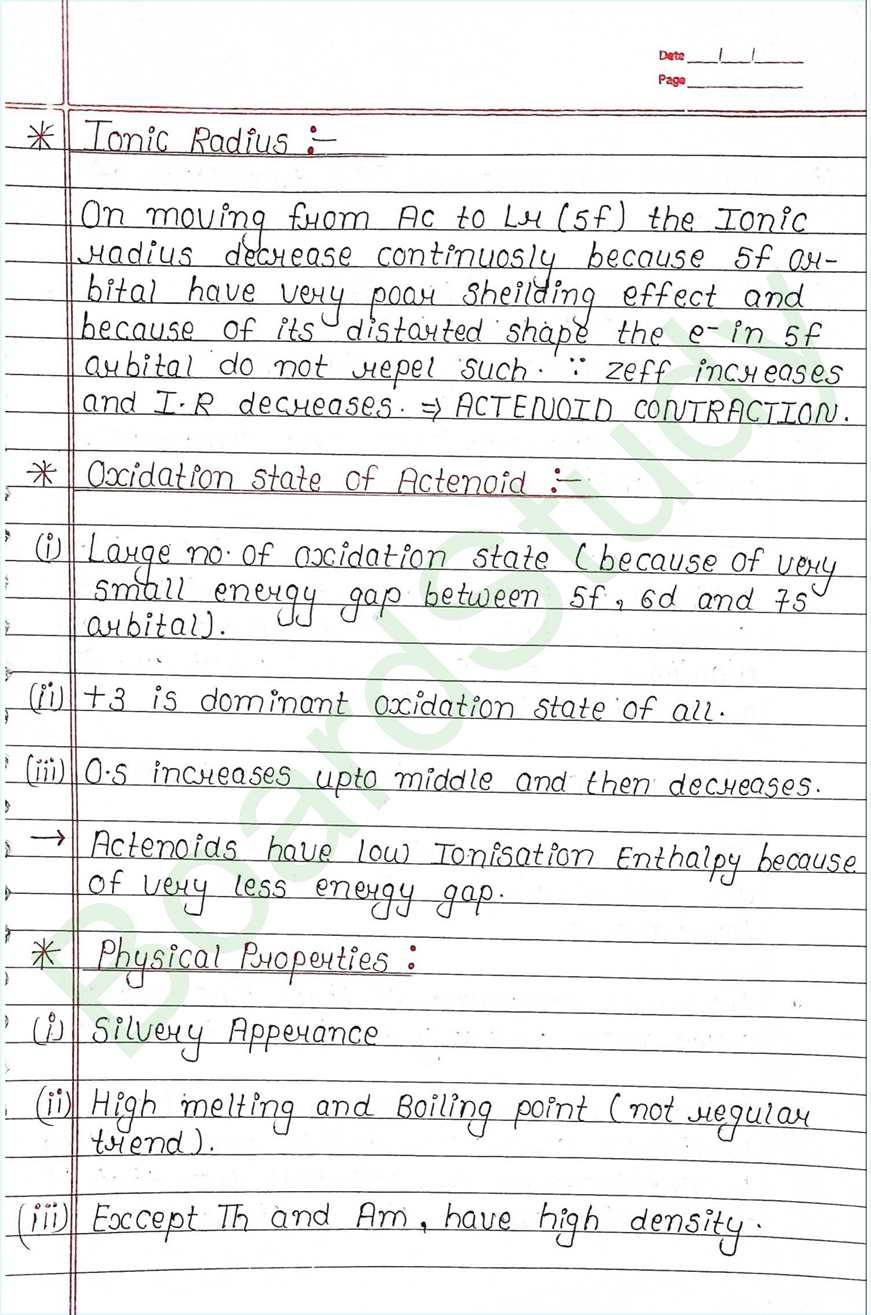 Date __/__/____
Page ________
* Ionic Radius :-
On moving from Ac to Lr (5f) the Ionic
radius decrease continuosly because 5f or-
bital have very poor sheilding effect and
because of its distorted shape the e- in 5f
orbital do not repel such. ∵ zeff increases
and I.R decreases. ⇒ ACTENOID CONTRACTION.
* Oxidation state of Actenoid :-
(i) Large no. of oxidation state (because of very
small energy gap between 5f, 6d and 7s
orbital).
(ii) +3 is dominant oxidation state of all.
(iii) O.S increases upto middle and then decreases.
→ Actenoids have low Ionisation Enthalpy because
of very less energy gap.
* Physical Properties :
(i) Silvery Apperance
(ii) High melting and Boiling point (not regular
trend).
(iii) Except Th and Am, have high density.
BoardStudy